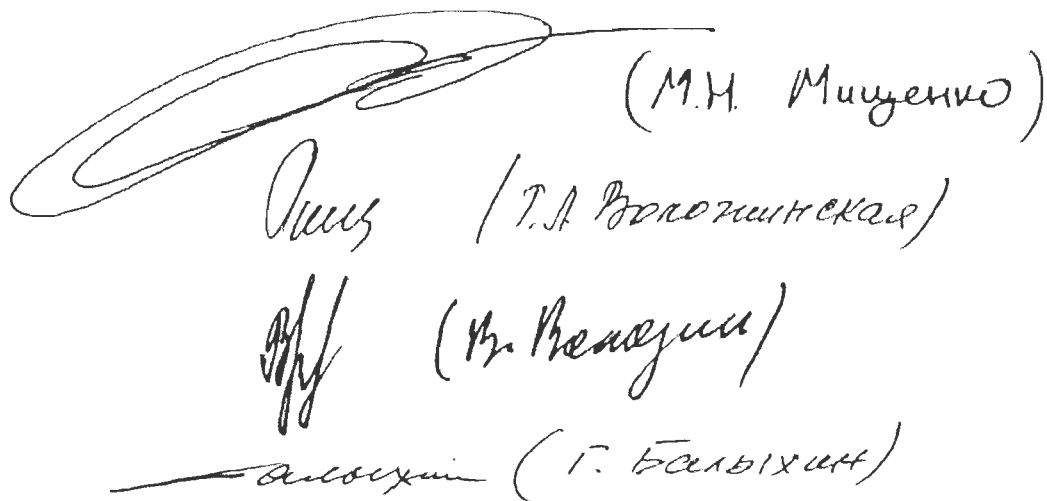 (М.Н. Мищенко)
(Т.А Воложинская)
(В. Володин)
(Г. Балыхин)